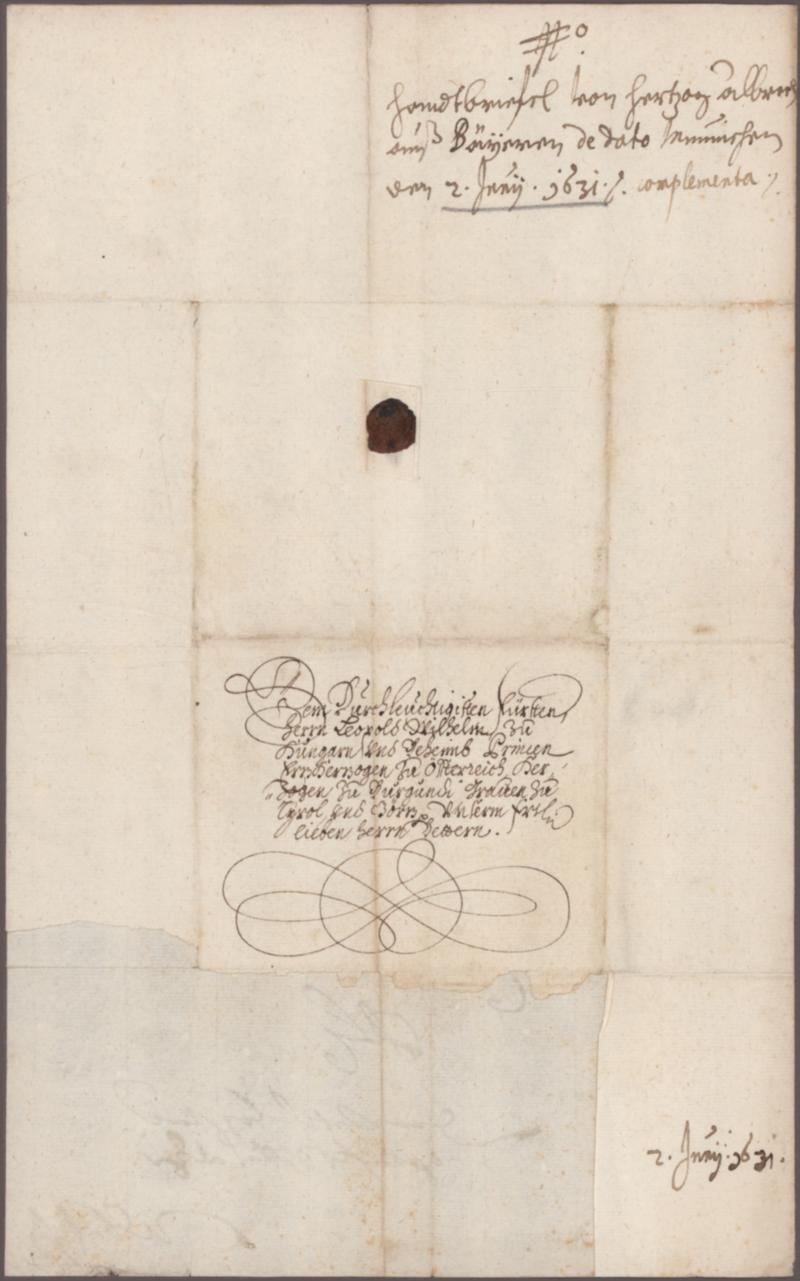 N°.
Handtbriefel von Hertzog Albrech
auß Bäyeren de dato München
den 2. Junij. 1631 ⁒. complementa ⁒.
Dem Durchleuchtigisten Fürsten,
Herrn Leopold Wilhelm, Zu
Hungarn Und Beheimb Prinzen
Ertzherzogen Zu Osterreich, Her-
zogen Zu Burgundi Grauen Zu
Tyrol und Görz. Unserm
lieben Herrn Vettern.
2. Junij. 1631.